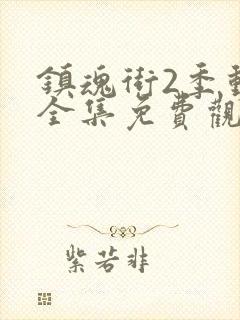 鎮魂街2季動
全集免費觀
紫若非